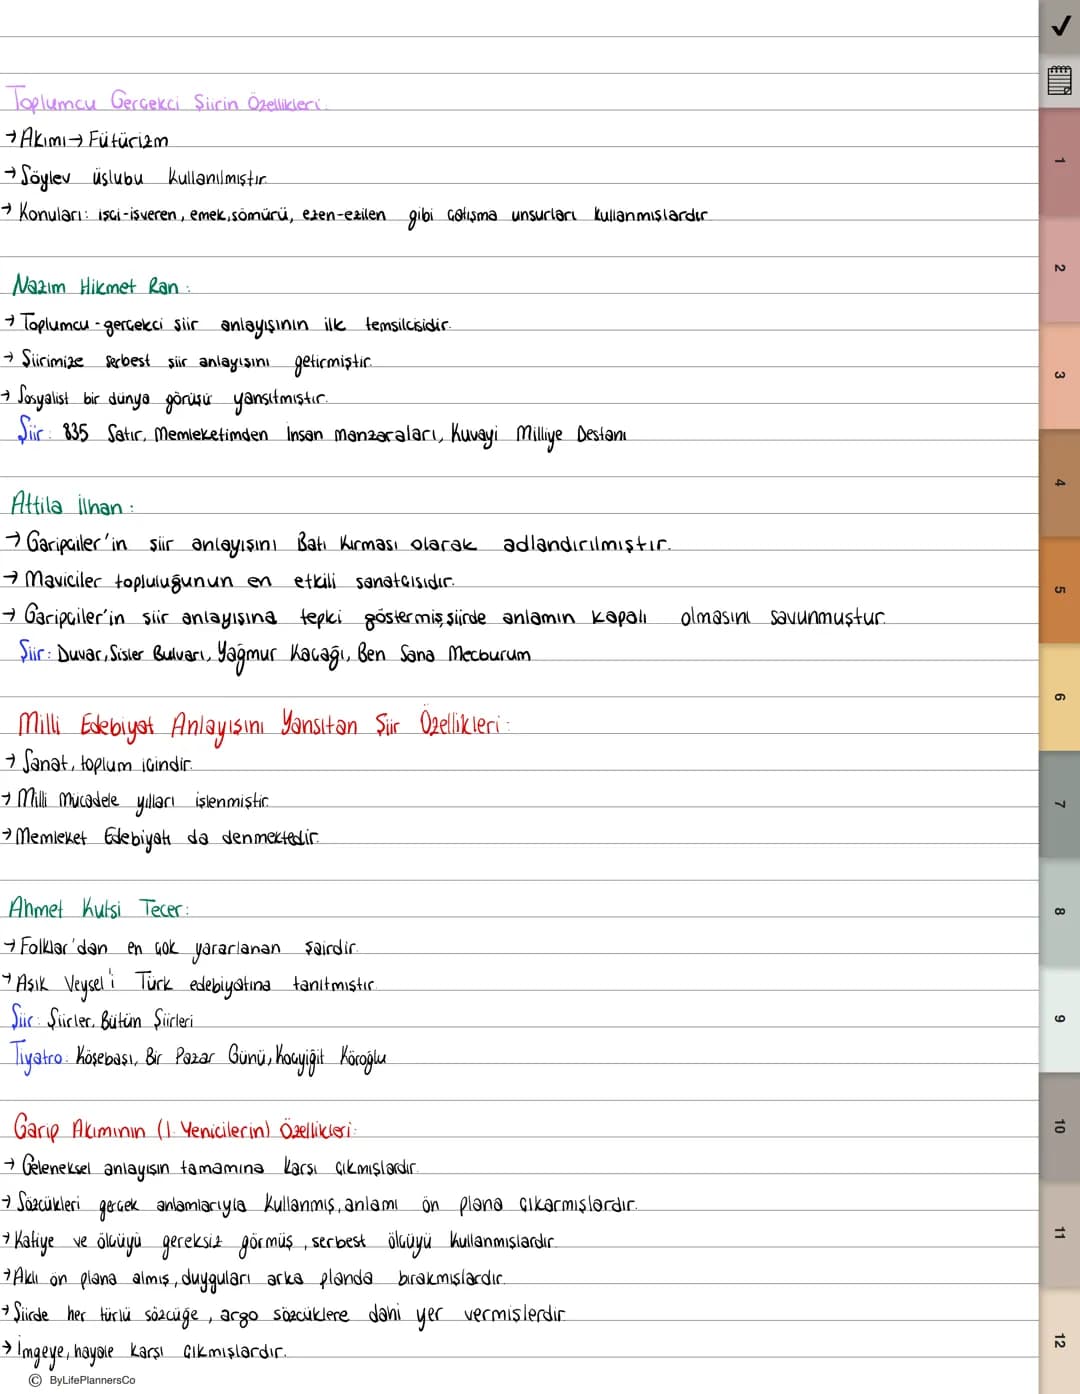 Toplumcu Gerçekci Şiirin Özellikleri:
→ Akımı → Fütürizm
→ Söylev üslubu kullanılmıştır.
→ Konuları: işçi-işveren, emek, sömürü, ezen-ezilen gibi çatışma unsurları kullanmışlardır.
Nazım Hikmet Ran:
→ Toplumcu-gerçekci şiir anlayışının ilk temsilcisidir.
→ Şiirimize serbest şiir anlayışını getirmiştir.
→ Sosyalist bir dünya görüşü yansıtmıştır.
Şiir: 835 Satır, Memleketimden İnsan Manzaraları, Kuvayi Milliye Destanı
Attila İlhan:
→ Garipçiler'in şiir anlayışını Batı Kırması olarak adlandırılmıştır.
→ Maviciler topluluğunun en etkili sanatçısıdır.
→ Garipçiler'in şiir anlayışına tepki göstermiş, şiirde anlamın kapalı olmasını savunmuştur.
Şiir: Duvar, Sisler Bulvarı, Yağmur Kaçağı, Ben Sana Mecburum
Milli Edebiyat Anlayışını Yansıtan Şiir Özellikleri:
→ Sanat, toplum içindir.
→ Milli Mücadele yılları işlenmiştir.
→ Memleket Edebiyatı da denmektedir.
Ahmet Kutsi Tecer:
→ Folklar'dan en çok yararlanan şairdir.
→ Aşık Veysel'i Türk edebiyatına tanıtmıştır.
Şiir: Şiirler, Bütün Şiirleri
Tiyatro: Köşebaşı, Bir Pazar Günü, Koçyiğit Köroğlu
Garip Akımının (1. Yenicilerin) Özellikleri:
→ Geleneksel anlayışın tamamına karşı çıkmışlardır.
→ Sözcükleri gerçek anlamlarıyla kullanmış, anlamı ön plana çıkarmışlardır.
→ Kafiye ve ölçüyü gereksiz görmüş, serbest ölçüyü kullanmışlardır.
→ Aklı ön plana almış, duyguları arka planda bırakmışlardır.
→ Şiirde her türlü sözcüğe, argo sözcüklere dahi yer vermişlerdir.
→ İmgeye, hayale karşı çıkmışlardır.
© ByLifePlannersCo
✓
1
2
3
4
5
6
7
8
9
10
11
12